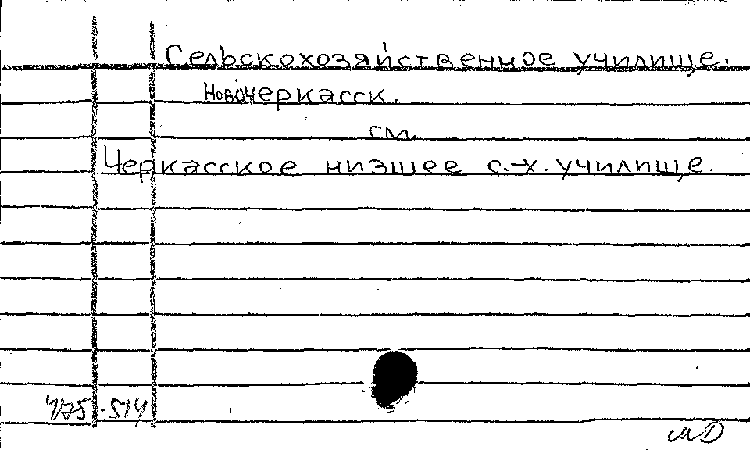 Сельскохозяйственное училище.
Новочеркасск.
см.
Черкасское низшее с.-х. училище.
425-514